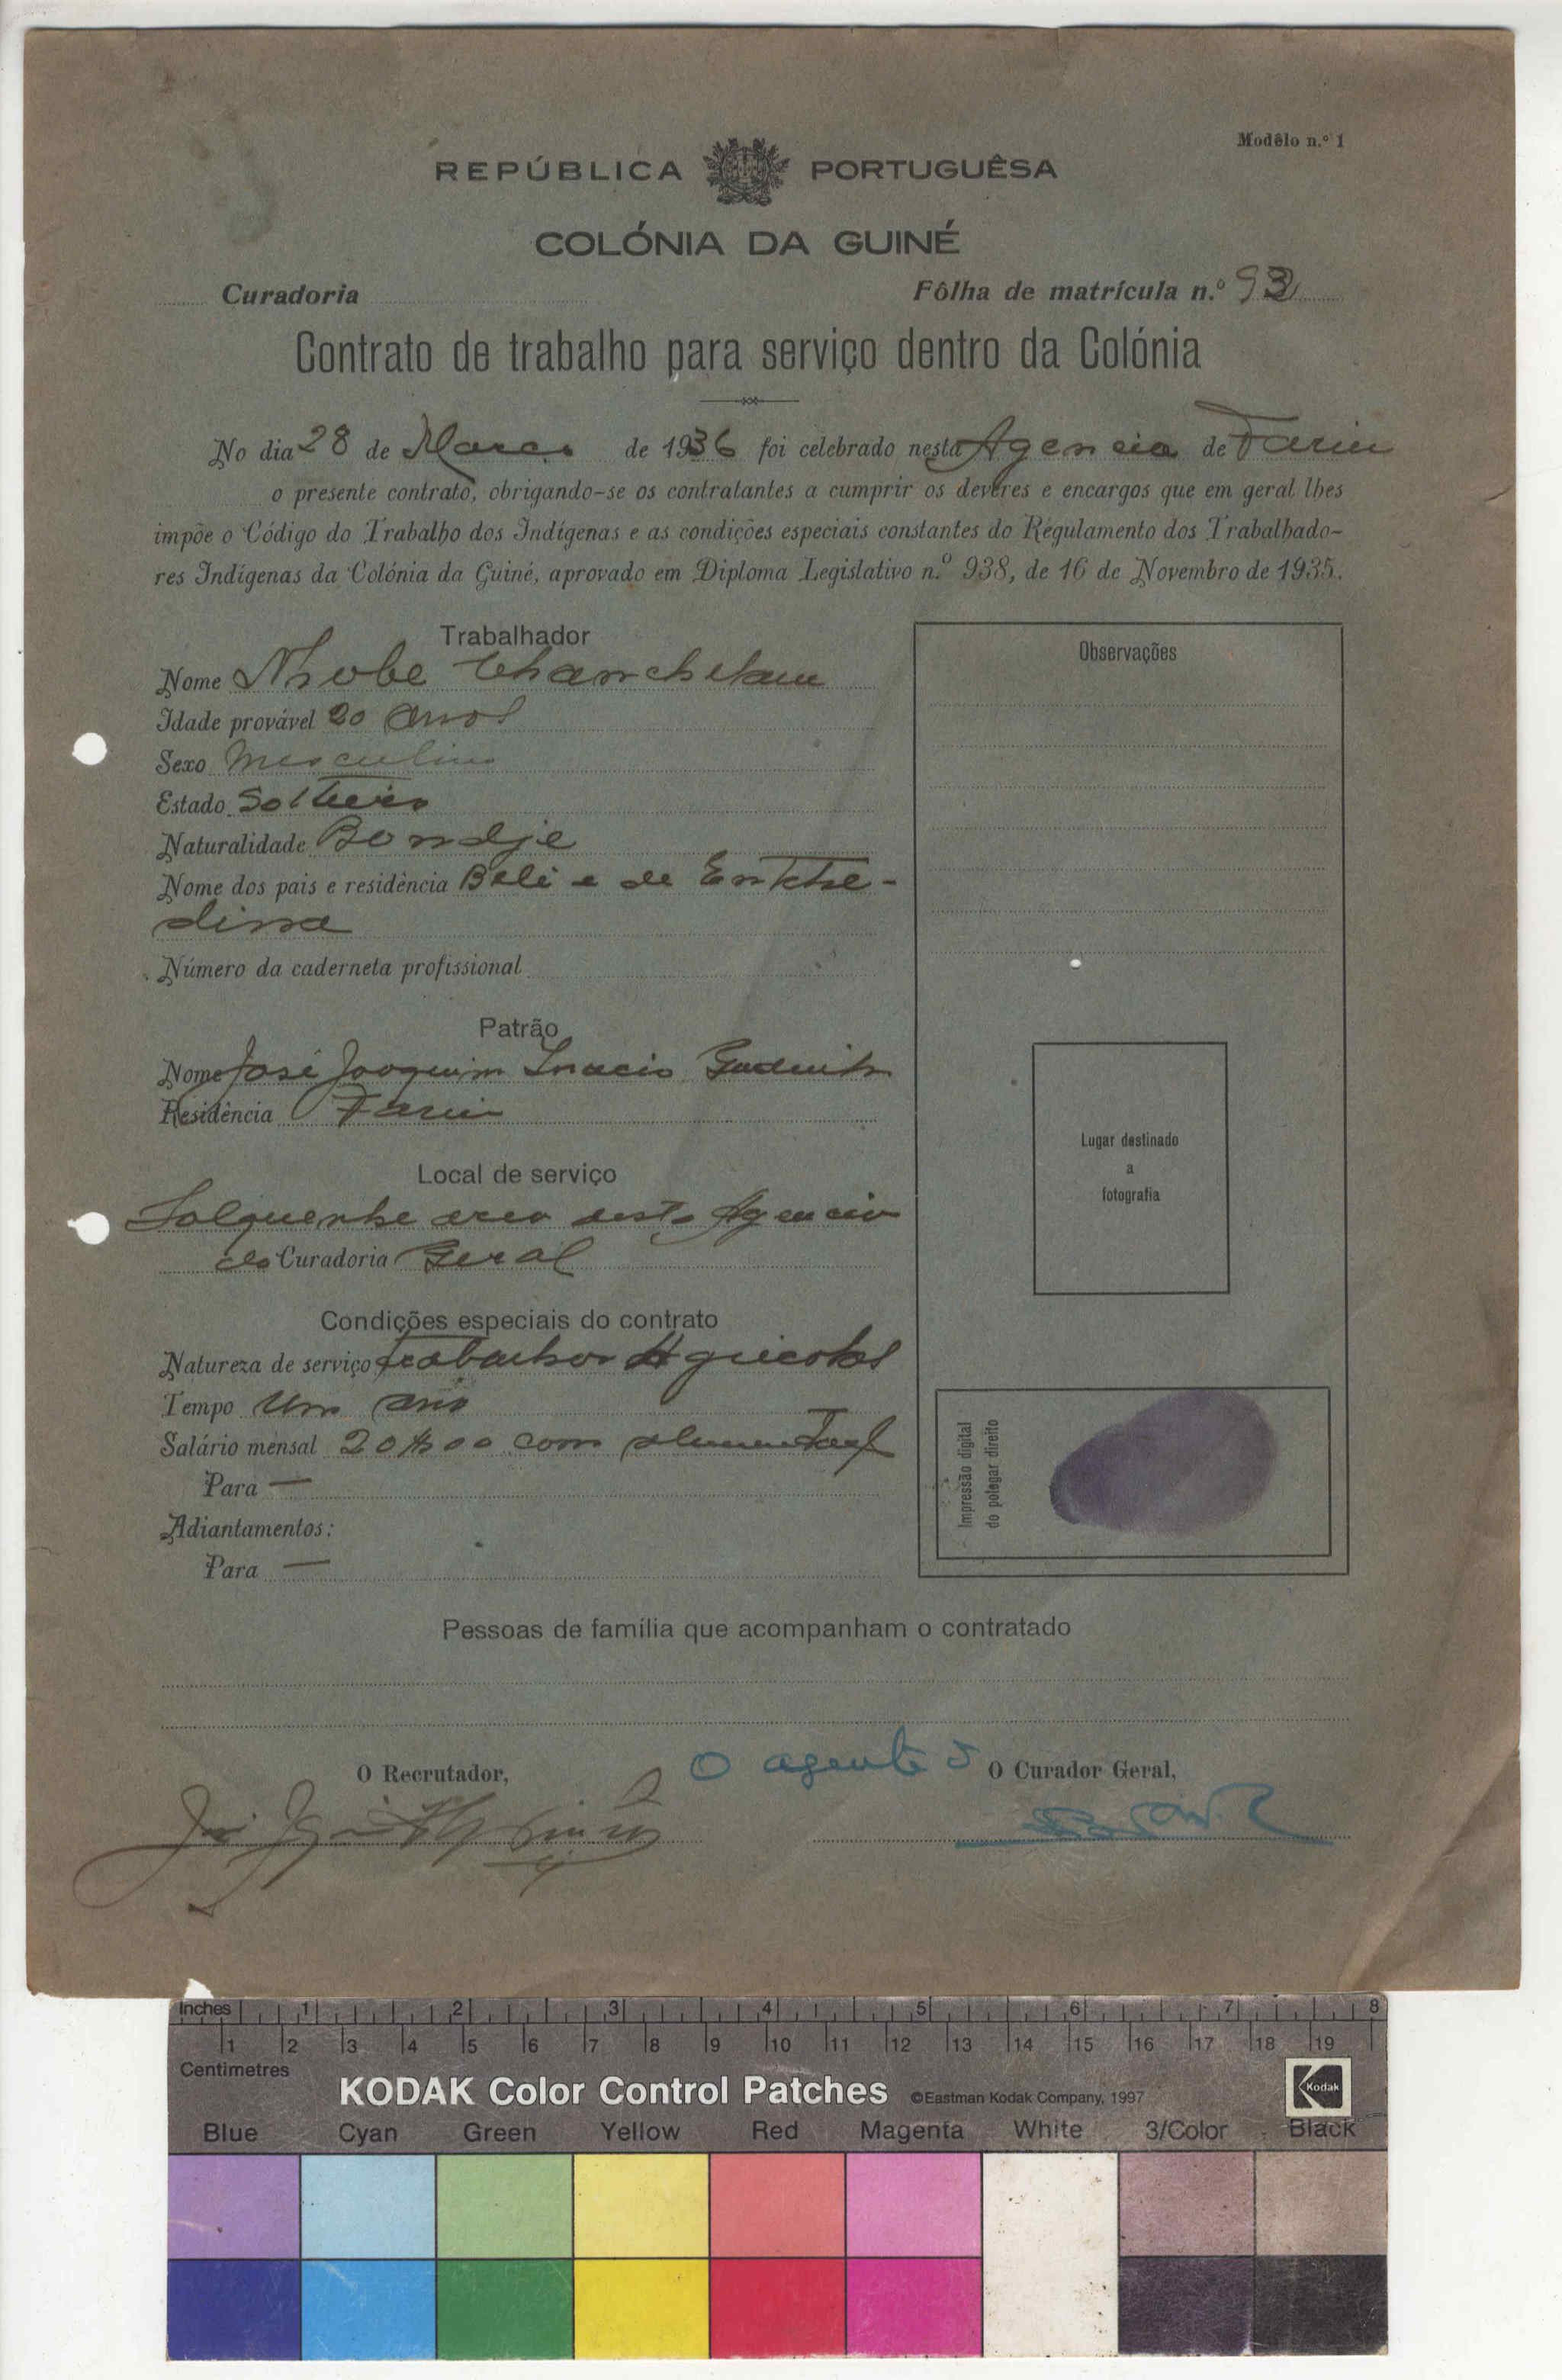 Modêlo n.º 1
REPÚBLICA PORTUGUÊSA
COLÓNIA DA GUINÉ
Curadoria
Fôlha de matrícula n.º 93
Contrato de trabalho para serviço dentro da Colónia
No dia 28 de Março de 1936 foi celebrado nesta Agencia de Farim
o presente contrato, obrigando-se os contratantes a cumprir os deveres e encargos que em geral lhes
impõe o Código do Trabalho dos Indígenas e as condições especiais constantes do Regulamento dos Trabalhado-
res Indígenas da Colónia da Guiné, aprovado em Diploma Legislativo n.º 938, de 16 de Novembro de 1935.
Trabalhador
Nome
Idade provável 20 anos
Sexo Masculino
Estado Solteiro
Naturalidade Bondje
Nome dos pais e residência Beli e de
Número da caderneta profissional
Patrão
Nome José Joaquim Inacio
Residência Farim
Local de serviço
area desta Agencia
da Curadoria Geral
Condições especiais do contrato
Natureza de serviço Agricolas
Tempo Um ano
Salário mensal 20$00 com
Para —
Adiantamentos:
Para —
Observações
Lugar destinado
a
fotografia
Impressão digital
do polegar direito
Pessoas de família que acompanham o contratado
O Recrutador,
O agente
O Curador Geral,
Inches 1 2 3 4 5 6 7 8
1 2 3 4 5 6 7 8 9 10 11 12 13 14 15 16 17 18 19
Centimetres
KODAK Color Control Patches ©Eastman Kodak Company, 1997 Kodak
Blue Cyan Green Yellow Red Magenta White 3/Color Black